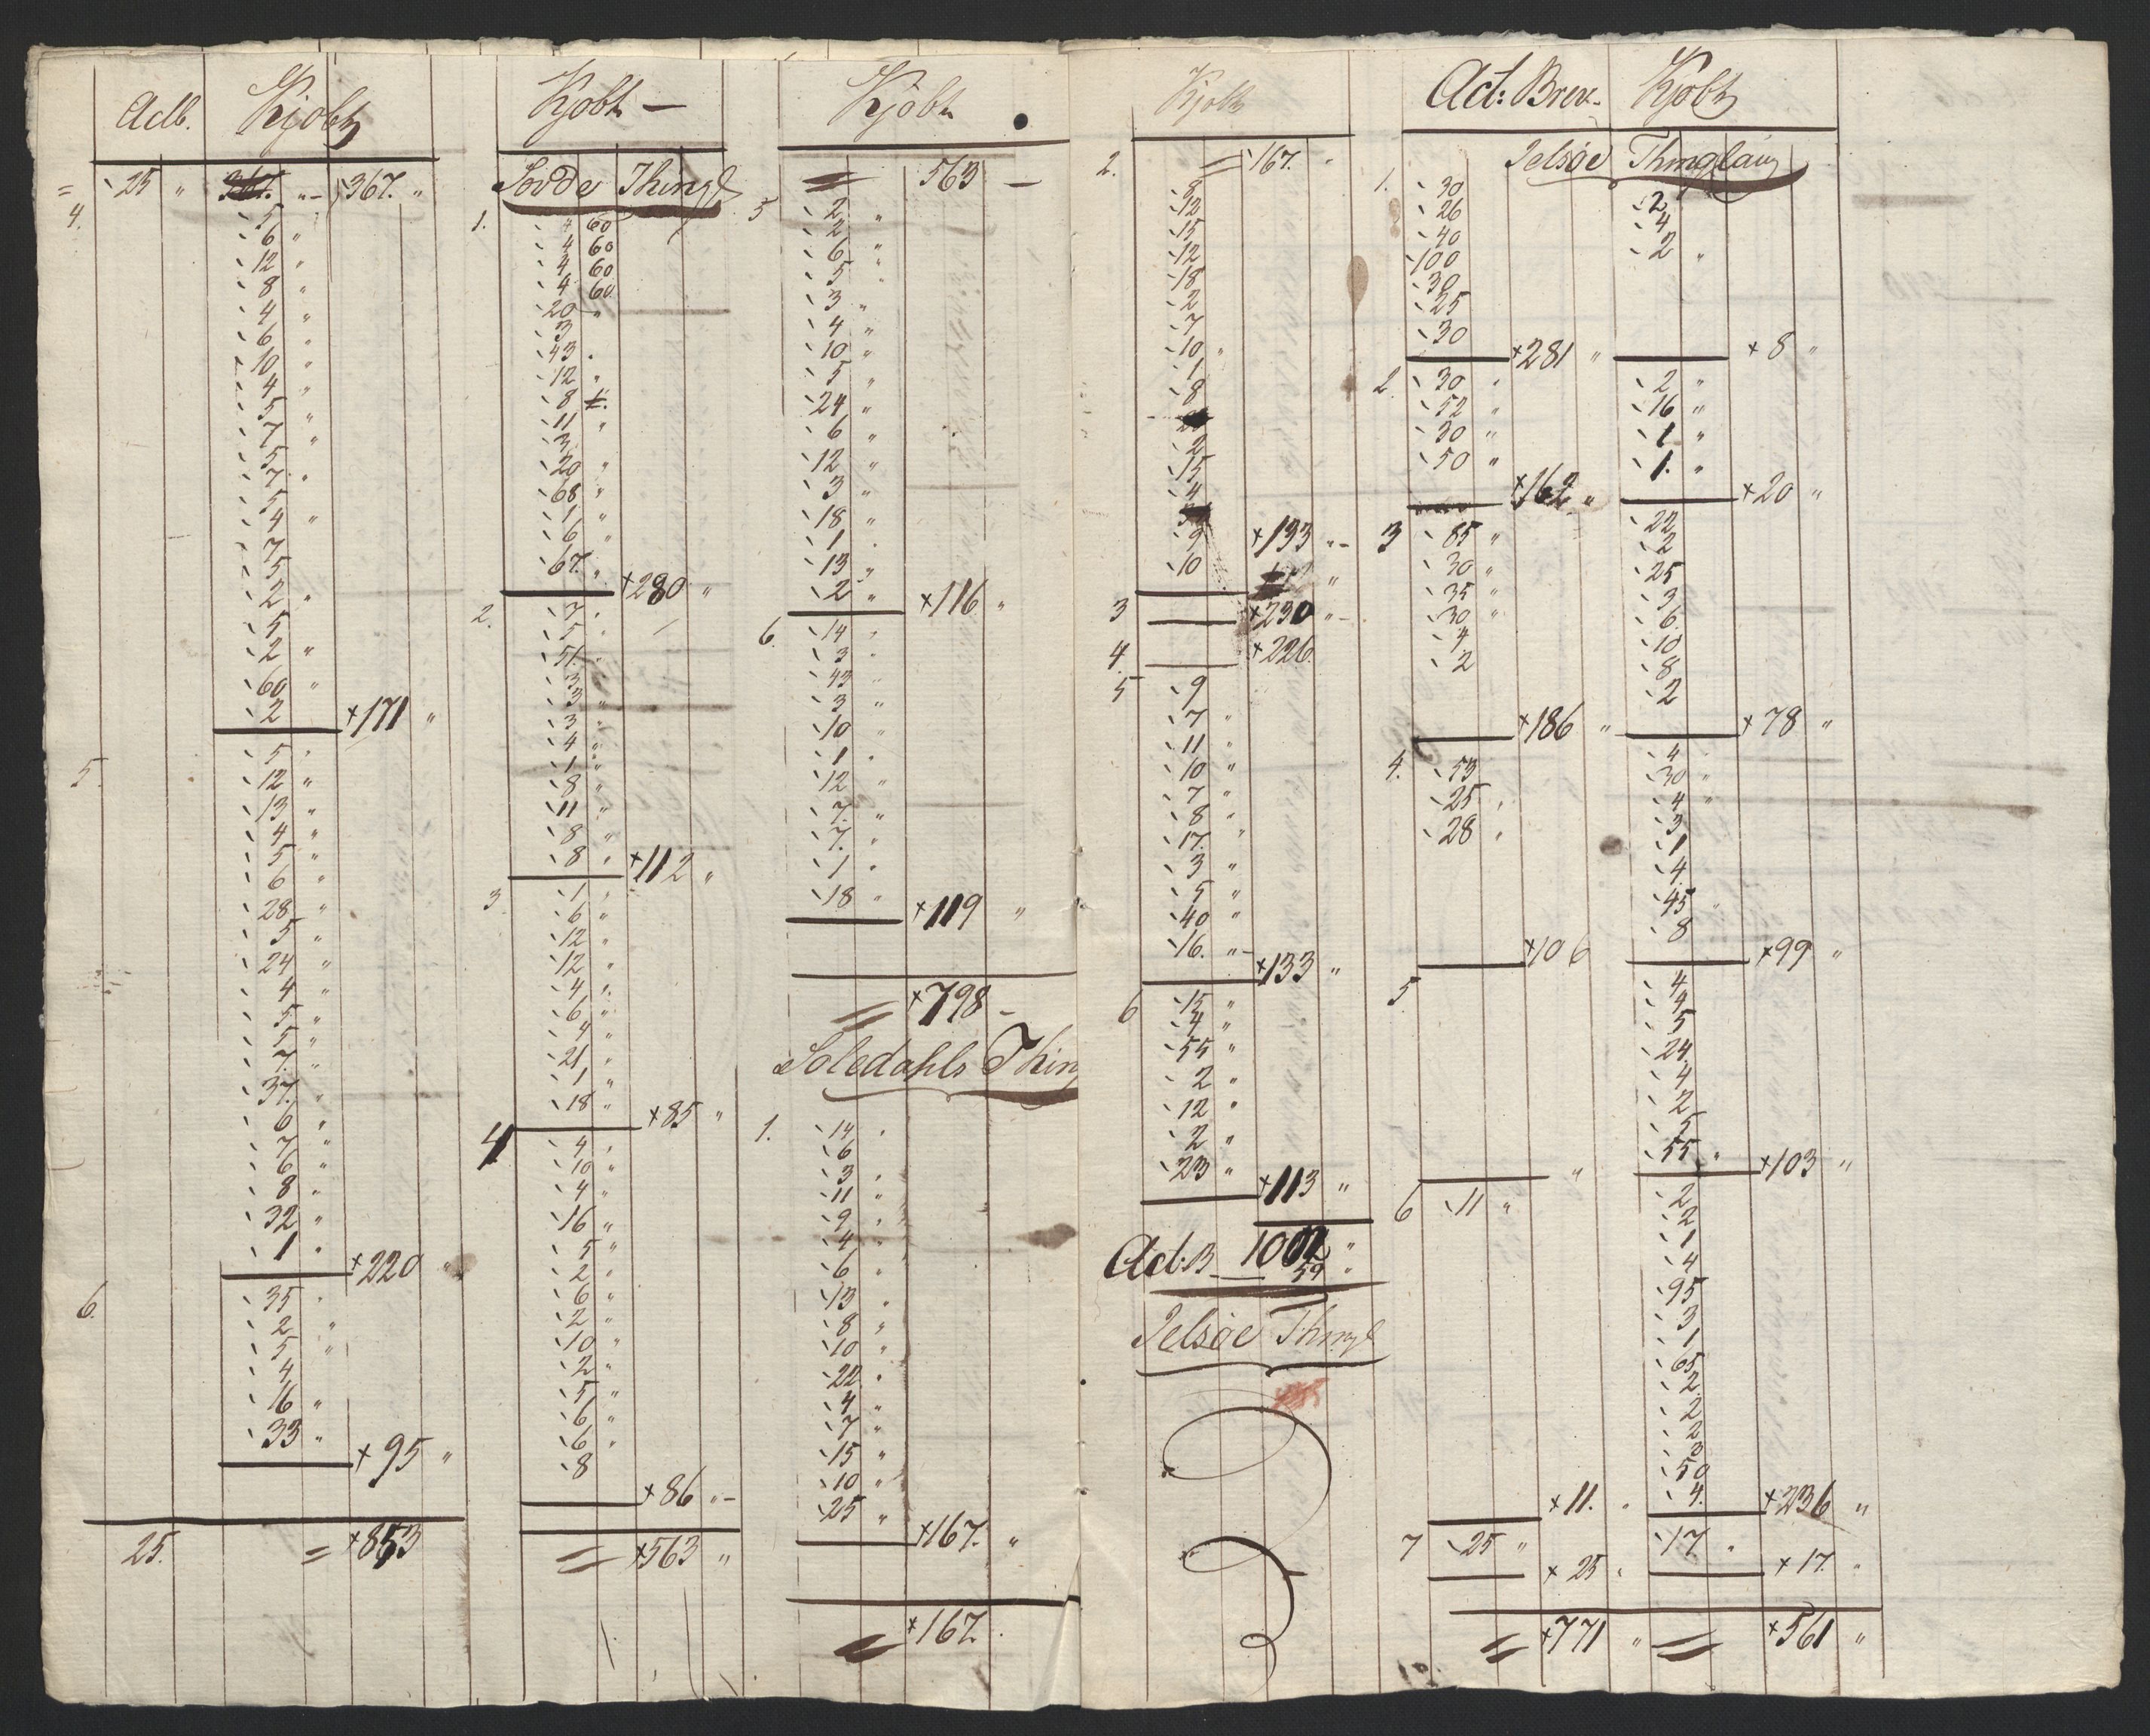 Adb. Kjøbt
= 25 " " - 367. "
4.
5
6 "
12 "
8 "
4 "
6 "
10 "
4 "
5 "
7 "
5
7 "
5
4 "
7
5
2 "
5
2 "
60 "
2
+171 "
5.
5 "
12 "
13 "
4 "
5 "
6 "
28 "
5 "
24 "
4 "
5 "
5 "
7. "
37. "
6 "
7 "
6 "
8 "
32 "
1 "
+220 "
6.
35 "
2 "
5 "
4
16 "
33 "
+95 "
25. = +853
Kjøbt —
Sovde Thingl
1.
4 60
4 60
4 60
4 60
20 "
3
43 .
12 "
8
11 "
3
20 "
68 "
1 "
6 "
67. "
+280 "
2.
7 "
5 "
51. "
3
3 "
3 "
4 "
1 "
8 "
11 "
8 "
8 "
+112 "
3
1 "
6 "
12 "
12 "
4 "
6 "
4 "
21 "
1 "
18 "
+85 "
4
4 "
10 "
4 "
16 "
5 "
2 "
6 "
2 "
10 "
2 "
5 "
6 "
6 "
8
+86 " -
= +563 "
Kjøbt
= 563 —
5
2 "
2
6 "
5 "
3 "
4 "
10 "
5 "
24 "
6 "
12 "
3 "
18 "
1 "
13 "
2 "
+116 "
6.
14 "
3 "
43 "
3 "
10 "
1 "
12 "
7. "
7. "
1 "
18 "
+119 "
= +798 -
Soledahls Thing
1.
14 "
6
3 "
11 "
9 "
4 "
6 "
13 "
8 "
10 "
22 "
4 "
7 "
15 "
10 "
25 "
+167. "
= +167.
Kjøbt
2. = 167. "
8
12
15
12
18
2
7
10 "
1
8
2
15
4
9
10
+133 " -
3 — +230 " -
4 — +226.
5
9
7 "
11 "
10 "
7 "
8 "
17. "
3 "
5 "
40 "
16. " -
+133 "
6
15 "
4 "
55 "
2 "
12 "
2 "
23 "
+113 "
Ad:B — 1002 "
59 "
Jelsøe Thingl
Ad: Brev. Kjøbt
Jelsøe Thinglaug
1.
30 2
26 4
40 2 "
100
30
25
30
+281 " +8 "
2.
30 " 2 "
52 " 16 "
30 " 1 "
50 " 1. "
+162 " +20 "
3
85 " 22
30 " 2
35 " 25
30 " 3
4 6
2 10
8
2
+186 " +78 "
4.
53 4 "
25 " 30 "
28 " 4 "
3
1
4.
45 "
8
+106 +99 "
5
4
4
5
24
4
2
5
55 "
" +103 "
6
11 " 2
2
1
4
95
3
1
65
2
2
2
3
50
4.
+11. " +236 "
7 25 " 17. "
+25 " +17. "
= +771 " = +561 "